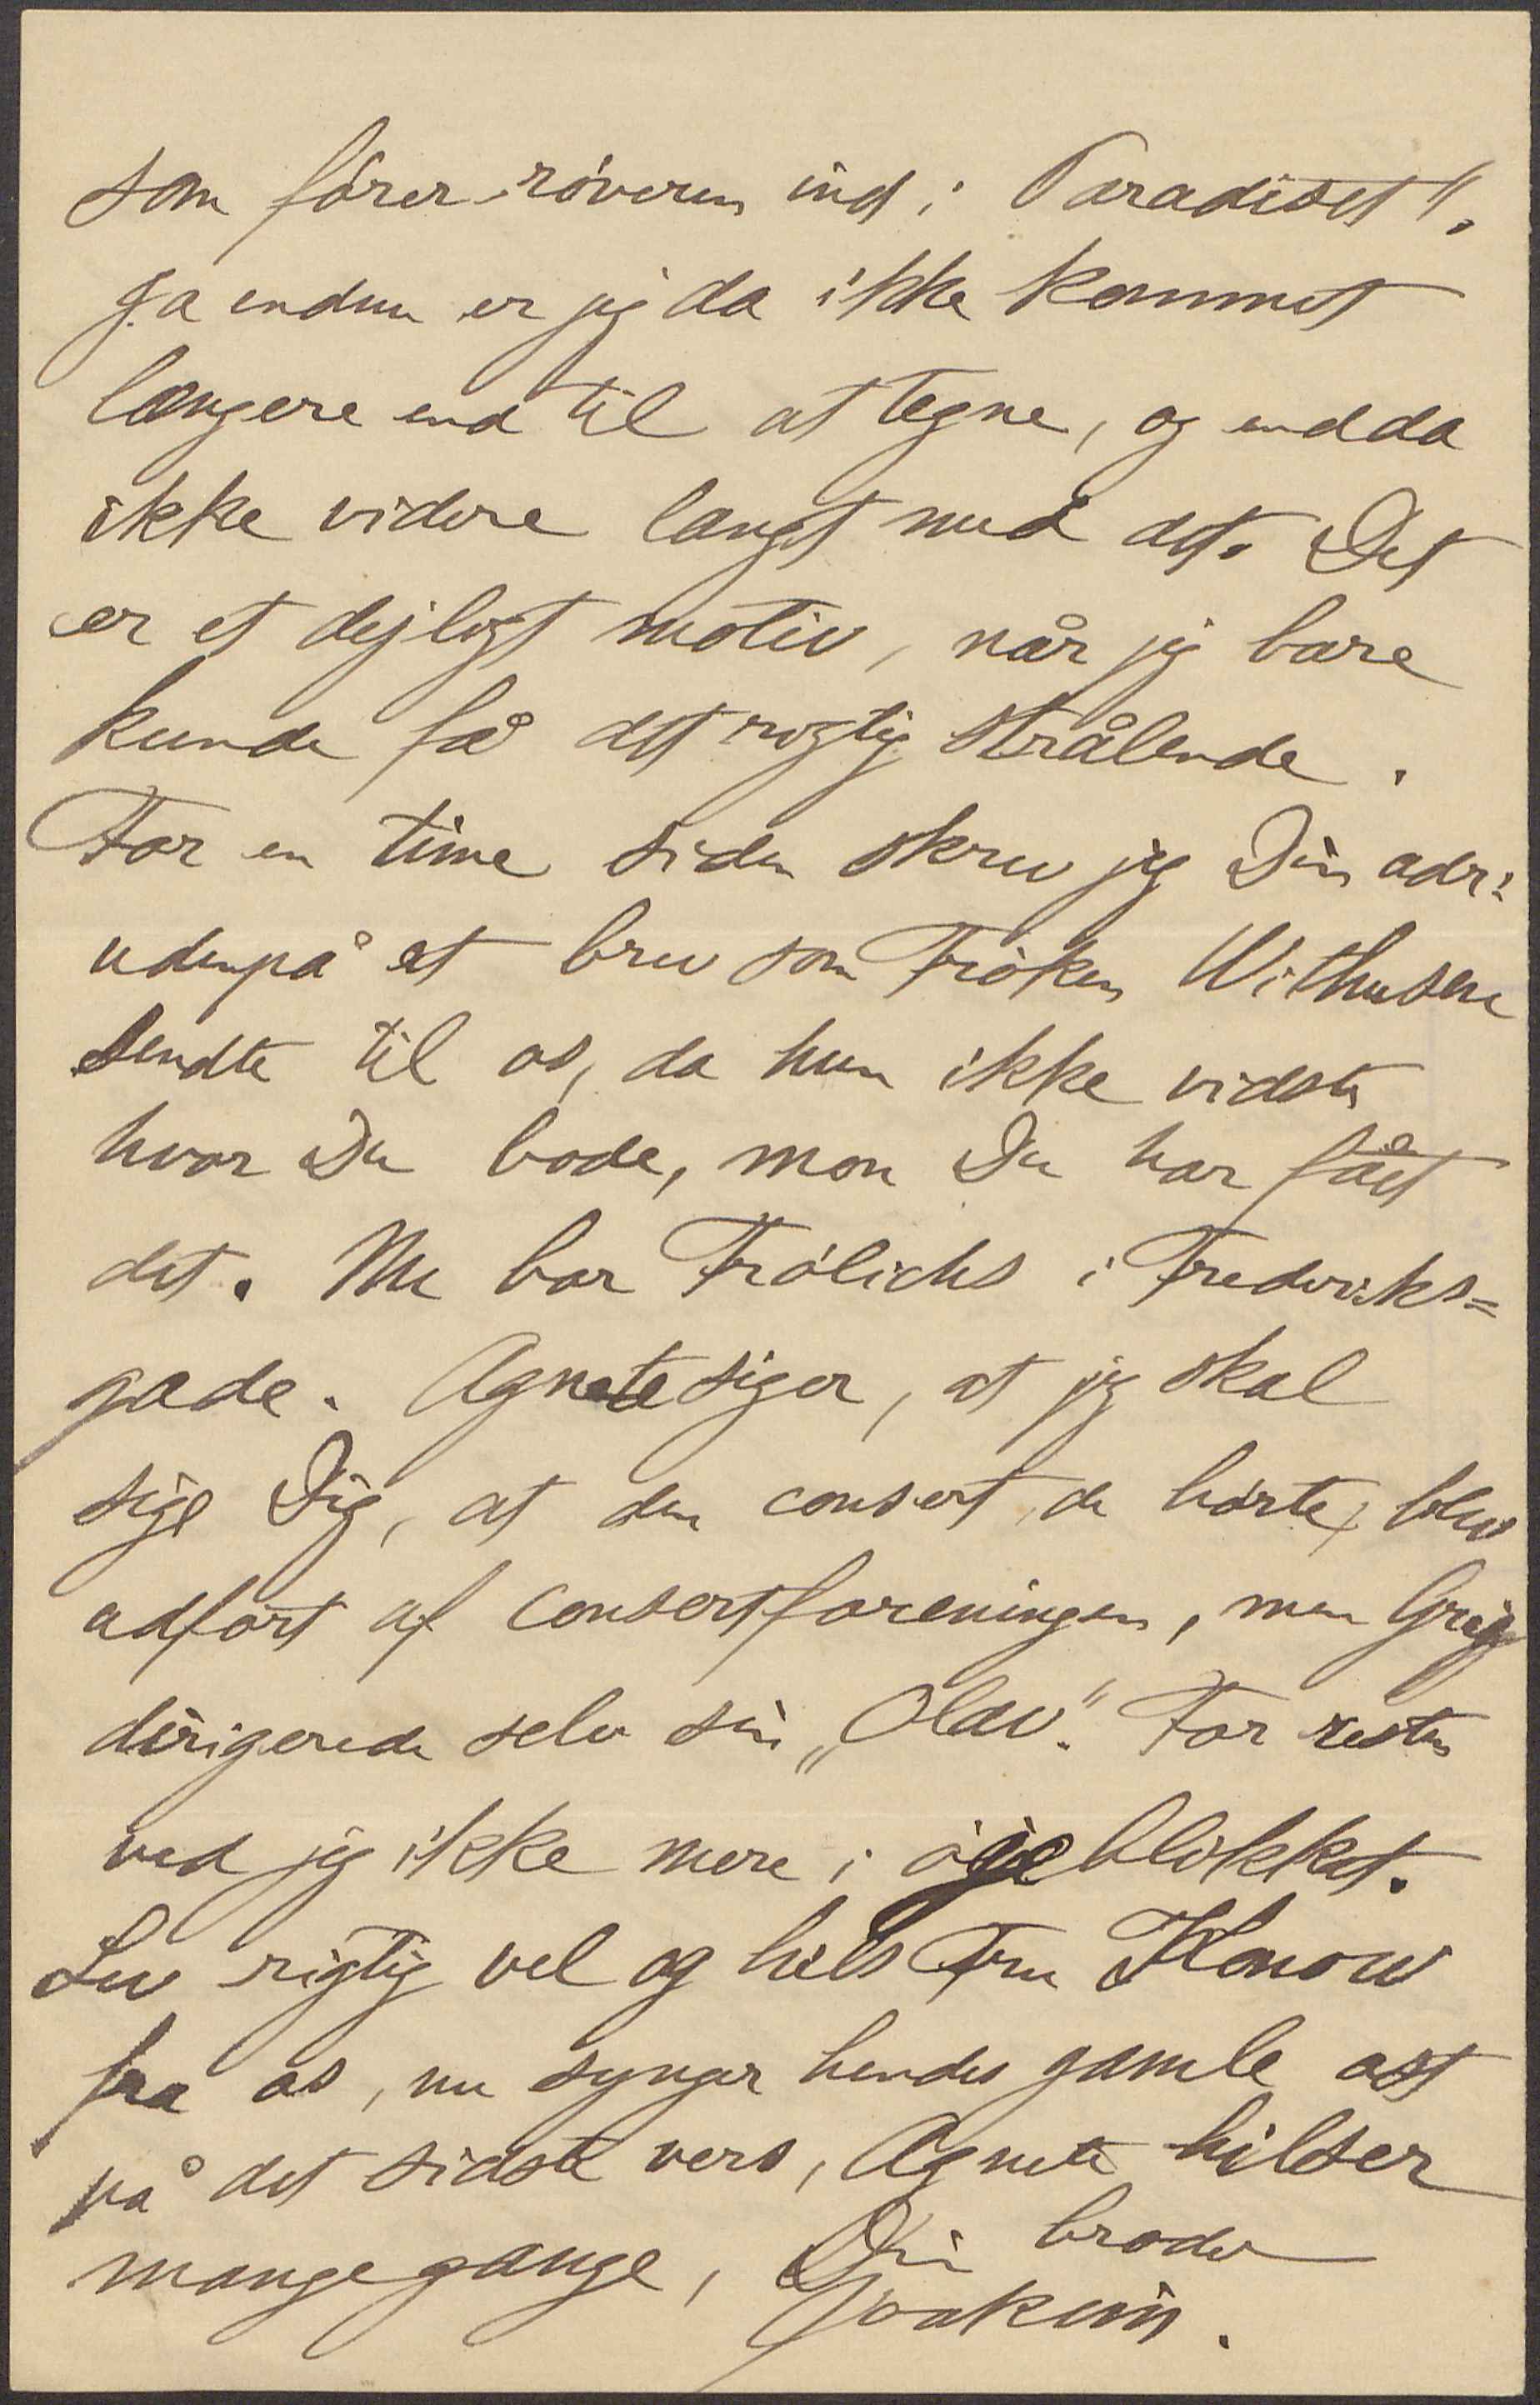 som fører røveren ind i Paradiset".
Ja endnu er jeg da ikke kommet
længere end til at tegne, og endda
ikke videre langt med det. Det
er et dejligt motiv, når jeg bare
kunde få det rigtig strålende.
For en time siden skrev jeg Din adr:
udenpå et brev som Frøken Withusen
sendte til os, da hun ikke vidste
hvor Du bode, mon Du har fået
det. Nu bor Frølichs i Frederiks=
gade. Agnete siger, at jeg skal
sige Dig, at den consert, de hørte, blev
udført af Consertforeningen, men Grieg
dirigerede selv sin „Olav". For resten
ved jeg ikke mere i øjeblikket.
Lev rigtig vel og hils Fru Konow
fra os, nu synger hendes gamle ost
på det sidste vers, Agnete hilser
mange gange, Din broder
Joakim.